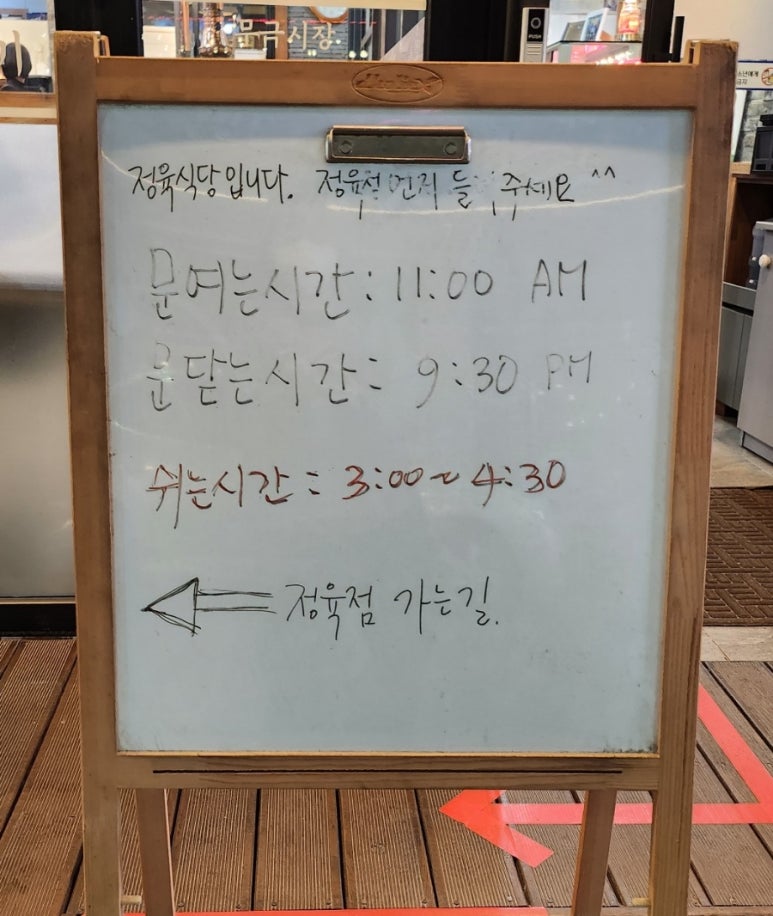 문근시장
PUSH
정육식당입니다. 정육점 먼저 들 주세요 ^^
문여는시간: 11:00 AM
문닫는시간: 9:30 PM
쉬는시간: 3:00~4:30
정육점 가는길.